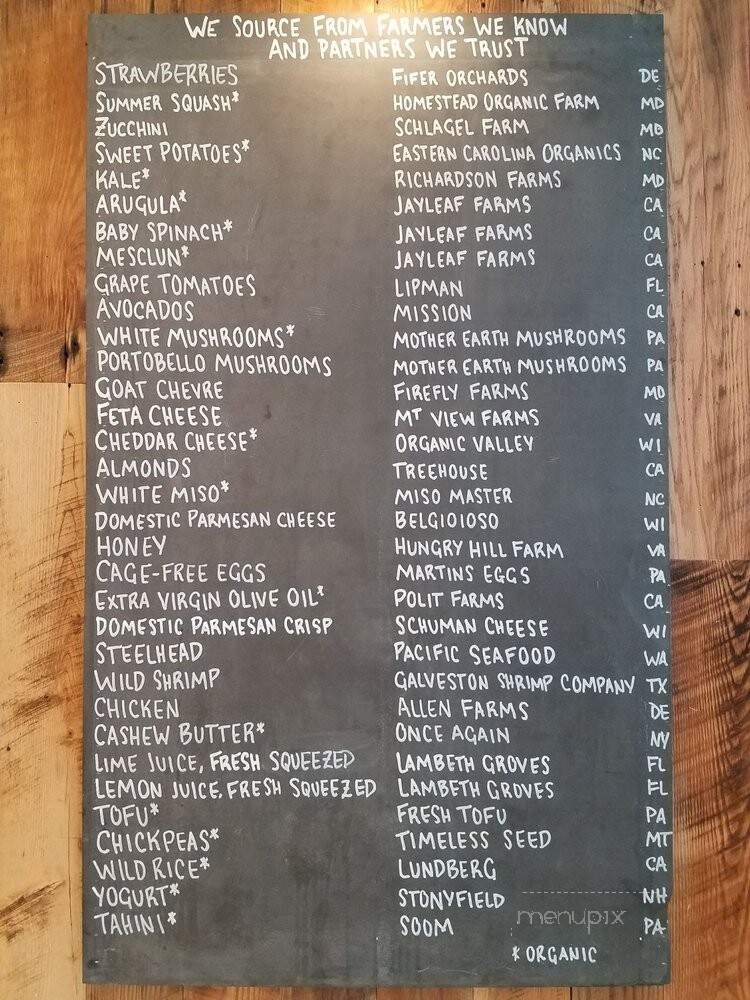 WE SOURCE FROM FARMERS WE KNOW
AND PARTNERS WE TRUST
STRAWBERRIES FIFER ORCHARDS DE
SUMMER SQUASH* HOMESTEAD ORGANIC FARM MD
ZUCCHINI SCHLAGEL FARM MD
SWEET POTATOES* EASTERN CAROLINA ORGANICS NC
KALE* RICHARDSON FARMS MD
ARUGULA* JAYLEAF FARMS CA
BABY SPINACH* JAYLEAF FARMS CA
MESCLUN* JAYLEAF FARMS CA
GRAPE TOMATOES LIPMAN FL
AVOCADOS MISSION CA
WHITE MUSHROOMS* MOTHER EARTH MUSHROOMS PA
PORTOBELLO MUSHROOMS MOTHER EARTH MUSHROOMS PA
GOAT CHEVRE FIREFLY FARMS MD
FETA CHEESE MT VIEW FARMS VA
CHEDDAR CHEESE* ORGANIC VALLEY WI
ALMONDS TREEHOUSE CA
WHITE MISO* MISO MASTER NC
DOMESTIC PARMESAN CHEESE BELGIOIOSO WI
HONEY HUNGRY HILL FARM VA
CAGE-FREE EGGS MARTINS EGGS PA
EXTRA VIRGIN OLIVE OIL* POLIT FARMS CA
DOMESTIC PARMESAN CRISP SCHUMAN CHEESE WI
STEELHEAD PACIFIC SEAFOOD WA
WILD SHRIMP GALVESTON SHRIMP COMPANY TX
CHICKEN ALLEN FARMS DE
CASHEW BUTTER* ONCE AGAIN NY
LIME JUICE, FRESH SQUEEZED LAMBETH GROVES FL
LEMON JUICE, FRESH SQUEEZED LAMBETH GROVES FL
TOFU* FRESH TOFU PA
CHICKPEAS* TIMELESS SEED MT
WILD RICE* LUNDBERG CA
YOGURT* STONYFIELD NH
TAHINI* SOOM PA
menupix
* ORGANIC